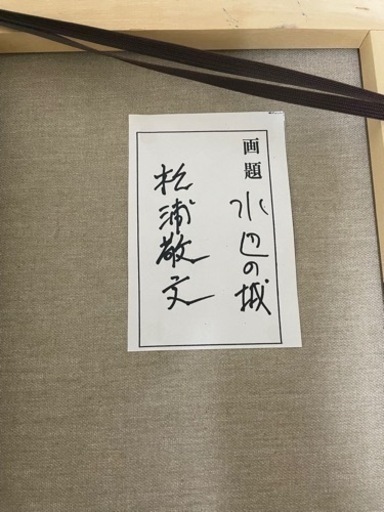 画題 水辺の城
松浦敬文